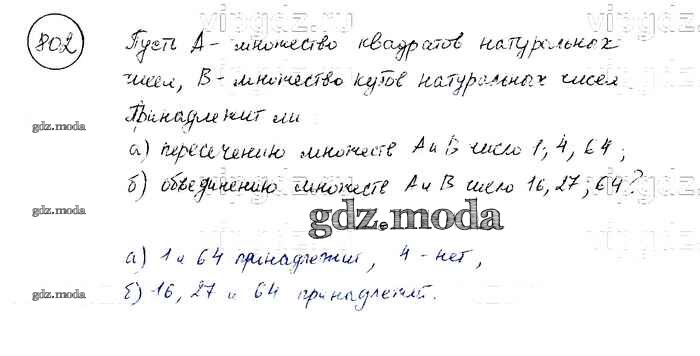 vipgdz.ru vipgdz.ru vipgdz.ru
802
Пусть A - множество квадратов натуральных
чисел, B - множество кубов натуральных чисел
Принадлежит ли
а) пересечению множеств A и B число 1; 4, 64;
б) объединению множеств A и B число 16, 27; 64?
gdz.moda
gdz.moda
gdz.moda
gdz.moda
gdz.moda
а) 1 и 64 принадлежит, 4 - нет,
б) 16, 27 и 64 принадлежит.